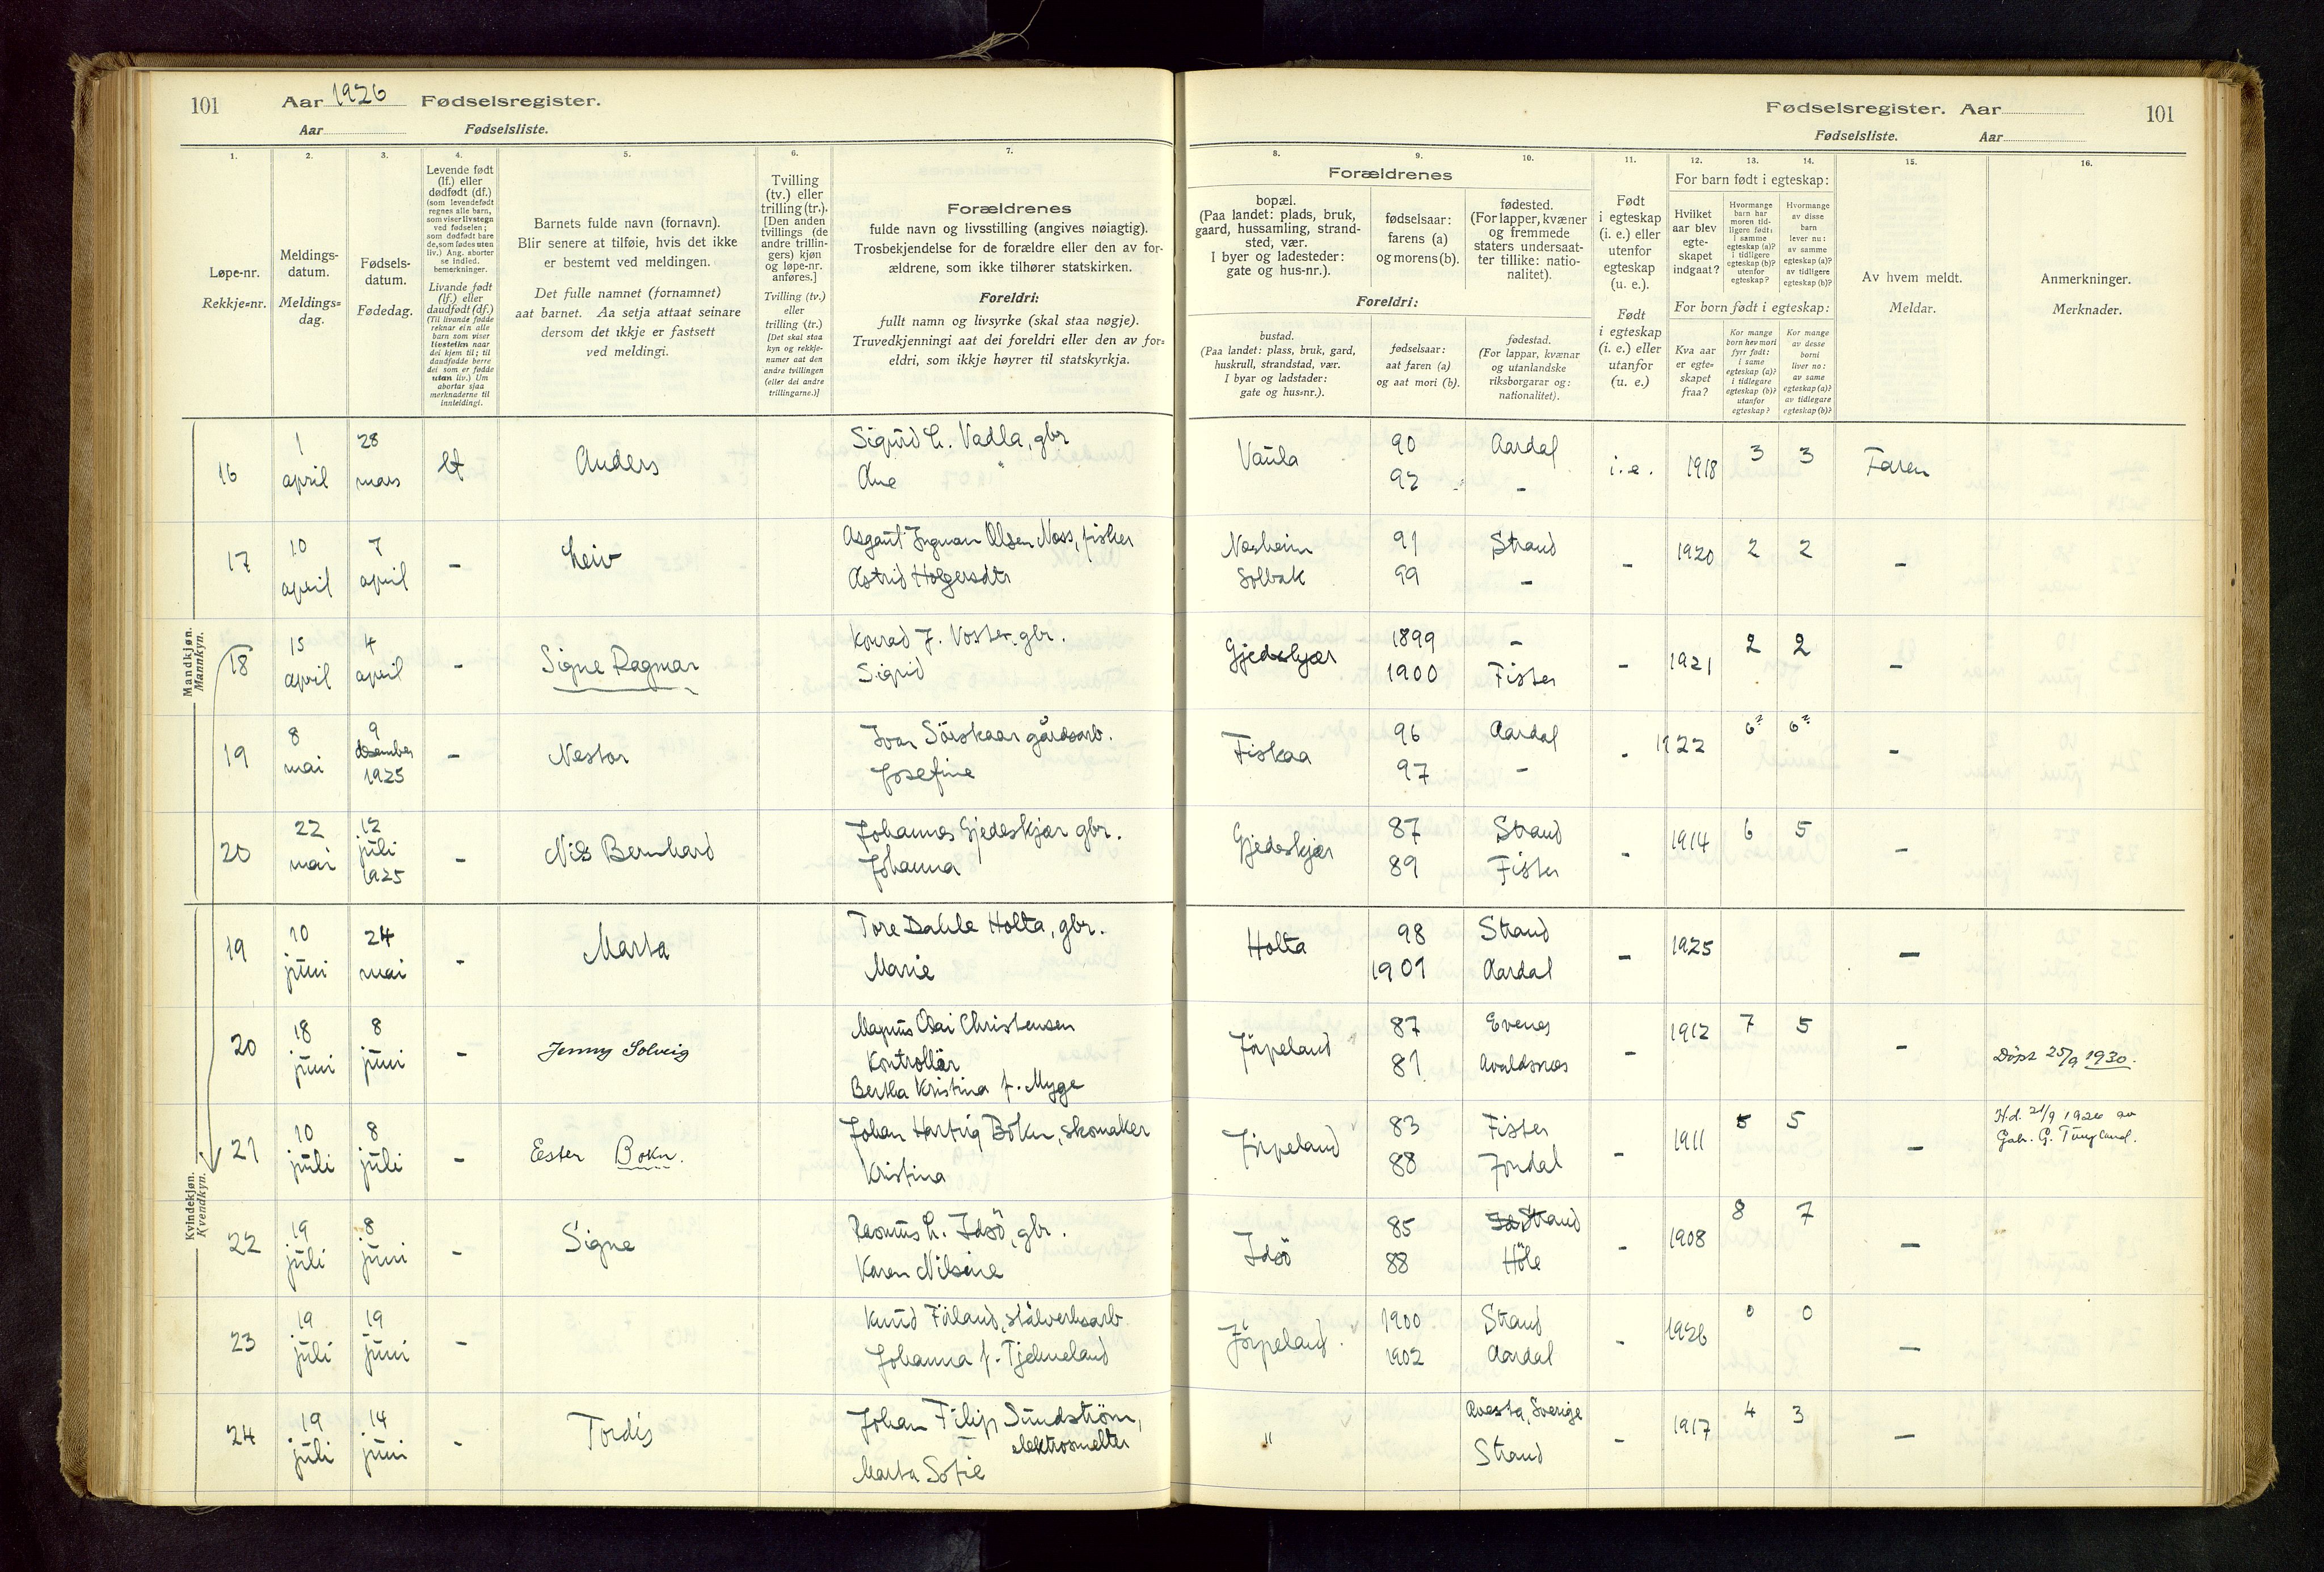 101 Aar 1926 Fødselsregister.
Aar Fødselsliste.
Fødselsregister. Aar 101
Fødselsliste. Aar
1. 2. 3. 4. 5. 6. 7. 8. 9. 10. 11. 12. 13. 14. 15. 16.
Løpe-nr.
Rekkje=nr.
Meldings-
datum.
Meldings=
dag.
Fødsels-
datum.
Fødedag.
Levende født
(lf.) eller
dødfødt (df.)
(som levendefødt
regnes alle barn,
som viser livstegn
ved fødselen;
som dødfødt bare
de, som fødes uten
liv.) Ang. aborter
se indled.
bemerkninger.
Livande født
(lf.) eller
daudfødt (df.)
(Til livande fødde
reknar ein alle
barn som viser
livsteikn naar
dei kjem til; til
daudfødde berre
dei som er fødde
utan liv.) Um
abortar sjaa
merknaderne til
innleidingi.
Barnets fulde navn (fornavn).
Blir senere at tilføie, hvis det ikke
er bestemt ved meldingen.
Det fulle namnet (fornamnet)
aat barnet. Aa setja attaat seinare
dersom det ikkje er fastsett
ved meldingi.
Tvilling
(tv.) eller
trilling (tr.).
[Den anden
tvillings (de
andre trillin-
gers) kjøn
og løpe-nr.
anføres.]
Tvilling (tv.)
eller
trilling (tr.)
[Det skal staa
kyn og rekkje-
numer aat den
andre tvillingen
(eller dei andre
trillingarne.)]
Forældrenes
fulde navn og livsstilling (angives nøiagtig).
Trosbekjendelse for de forældre eller den av for-
ældrene, som ikke tilhører statskirken.
Foreldri:
fullt namn og livsyrke (skal staa nøgje).
Truvedkjenningi aat dei foreldri eller den av for=
eldri, som ikkje høyrer til statskyrkja.
Forældrenes
bopæl.
(Paa landet: plads, bruk,
gaard, hussamling, strand-
sted, vær.
I byer og ladesteder:
gate og hus-nr.).
fødselsaar:
farens (a)
og morens (b).
fødested.
(For lapper, kvæner
og fremmede
staters undersaat-
ter tillike: natio-
nalitet).
Foreldri:
bustad.
(Paa landet: plass, bruk, gard,
huskrull, strandstad, vær.
I byar og ladstader:
gate og hus=nr.).
fødselsaar:
aat faren (a)
og aat mori (b).
fødestad.
(For lappar, kvænar
og utanlandske
riksborgarar og:
nationalitet).
Født
i egteskap
(i. e.) eller
utenfor
egteskap
(u. e.).
Født
i egteskap
(i. e.) eller
utanfor
(u. e.)
For barn født i egteskap:
Hvilket
aar blev
egte-
skapet
indgaat?
Hvormange
barn har
moren tid-
ligere født:
i samme
egteskap (a)?
i tidligere
egteskap (b)?
utenfor
egteskap?
Hvormange
av disse
barn
lever nu:
av samme
egteskap (a)?
av tidligere
egteskap (b)?
For born født i egteskap:
Kva aar
er egte=
skapet
fraa?
Kor mange
born hev mori
fyrr født:
i same
egteskap (a)?
i tidlegare
egteskap (b)?
utanfor
egteskap?
Kor mange
av desse
borni
liver no:
av same
egteskap (a)?
av tidlegare
egteskap (b)?
Av hvem meldt.
Meldar.
Anmerkninger.
Merknader.
Mandkjøn.
Mannkyn.
16 1 april 28 mars lf Anders Sigurd L. Vadla, gbr Ane Vaula 90 92 Aardal - i.e. 1918 3 3 Faren
17 10 april 7 april - Leiv Asgaut Ingman Olsen Næss, fisker Astrid Holgersdtr Næsheim Solbak 91 99 Strand - - 1920 2 2 -
18 15 april 4 april - Signe Ragmar Konrad J. Voster, gbr. Sigrid Gjedeskjær 1899 1900 - Fister - 1921 2 2 -
19 8 mai 9 desember 1925 - Nestor Ivar Sörskaar gårdsarb. Josefine Fiskaa 96 97 Aardal - - 1922 6? 6? -
20 22 mai 12 juli 1925 - Nils Bernhard Johannes Gjedeskjær gbr. Johanna Gjedeskjær 87 89 Strand Fister - 1914 6 5 -
Kvindekjøn.
Kvendkyn.
19 10 juni 24 mai - Marta Tore Dahle Holta, gbr. Marie Holta 98 1901 Strand Aardal - 1925 -
20 18 juni 8 juni - Jenny Solveig Magnus Olai Christensen Kontrollör Bertha Kristina f. Myge Jörpeland 87 81 Evenes Avaldsnes - 1912 7 5 - Döpt 25/9 1930.
21 10 juli 8 juli - Ester Bokn. Johan Hartvig Bokn, skomaker Kristina Jörpeland 83 88 Fister Jondal - 1911 5 5 - H.d. 21/9 1926 av Gabr. G. Tungland.
22 19 juli 8 juni - Signe Rasmus L. Idsö, gbr. Karen Nilsine Idsö 85 88 Strand Höle - 1908 8 7 -
23 19 juli 19 juni - Knud Förland, stålverksarb. Johanna f. Tjelmeland Jörpeland. 1900 1902 Strand Aardal - 1926 0 0 -
24 19 juli 14 juni - Tordis Johan Filip Sundström, elektrosmelter Marta Sofie " Avesta, Sverige Strand - 1917 4 3 -